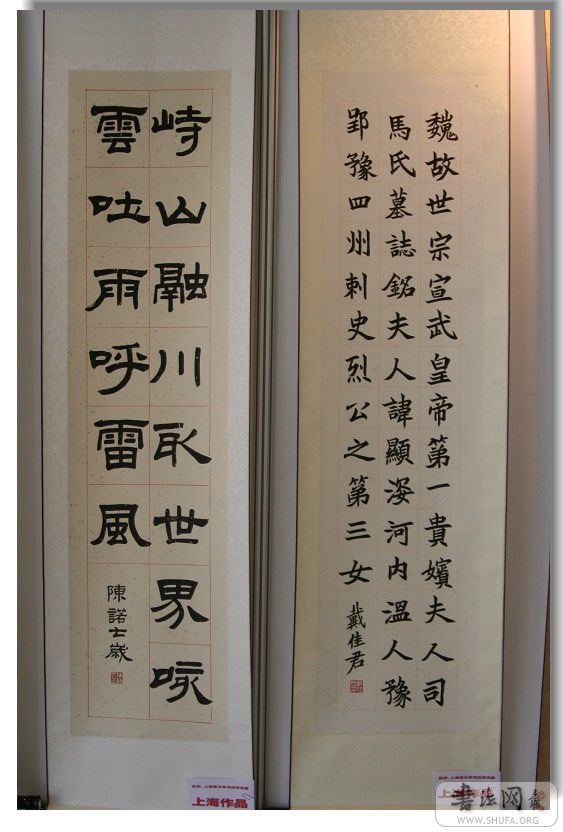 魏故世宗宣武皇帝第一貴嬪夫人司
馬氏墓誌銘夫人諱顯姿河内溫人豫
郢豫四州刺史烈公之第三女
戴佳君
峙山融川取世界
雲吐雨呼雷風
陳諾歲
上海作品
书法网
WWW.SHUFA.ORG